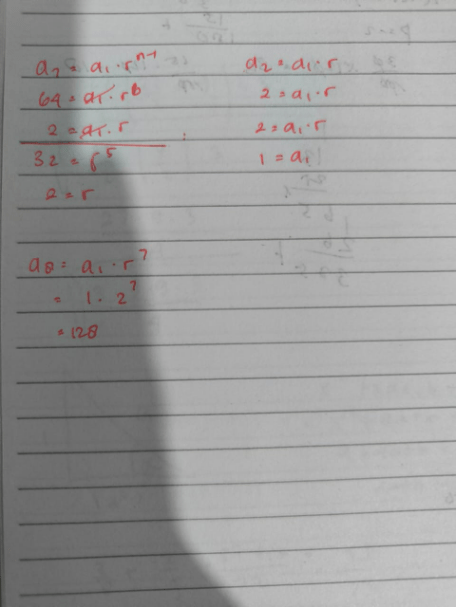 a₇ = a₁ · rⁿ⁻¹
64 = a₁ · r⁶
2 = a₁ · r :
32 = r⁵
2 = r
a₂ = a₁ · r
2 = a₁ · r
2 = a₁ · r
1 = a₁
a₈ = a₁ · r⁷
= 1 · 2⁷
= 128